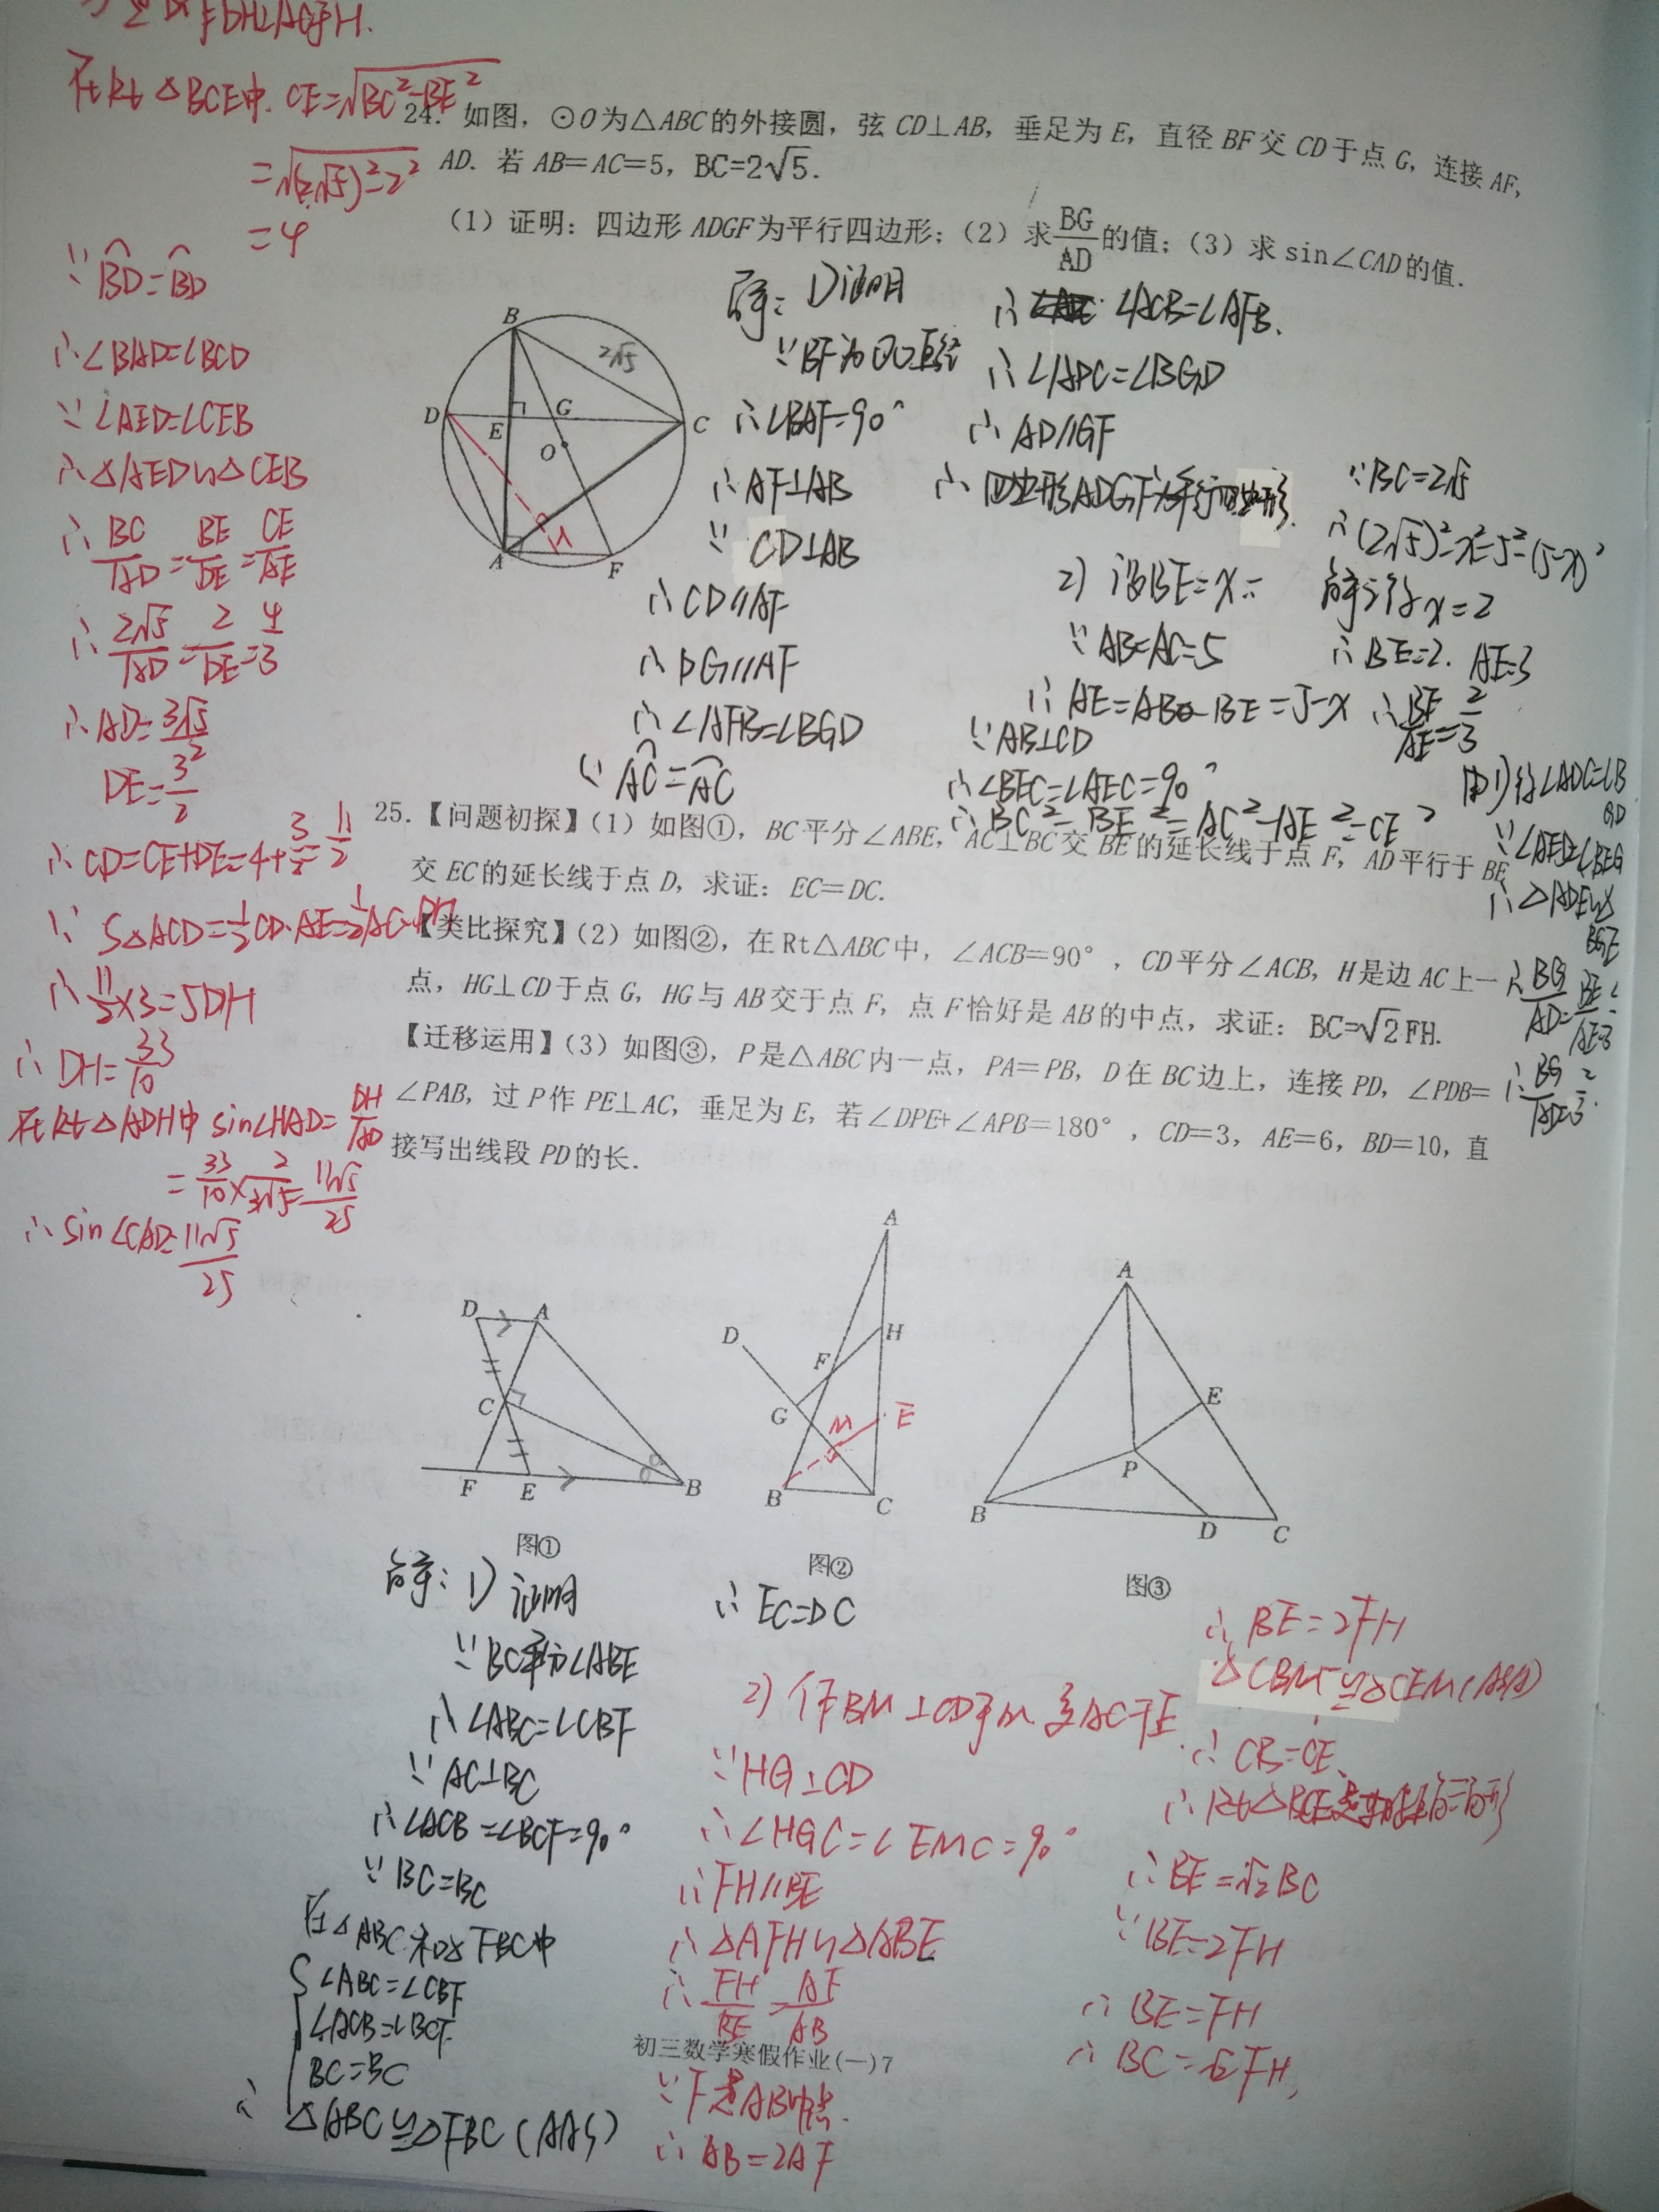 在Rt△BCE中. CE=√BC²-BE²
=√(2√5)²-2²
=4
∵ BD=BD
∴∠BAD=∠BCD
∵ ∠AED=∠CEB
∴△AED∽△CEB
∴ BC/AD=BE/DE=CE/AE
∴ 2√5/AD=2/DE=4/3
∴AD=3√5/2
DE=3/2
∴CD=CE+DE=4+3/2=11/2
∵ S△ACD=1/2CD·AE=1/2AC·DH
∴ 11/2×3=5DH
∴ DH=33/10
在Rt△ADH中 sin∠HAD=DH/AD
=33/10×2/3√5=11√5/25
∴sin∠CAD=11√5/25
24. 如图，⊙O为△ABC的外接圆，弦CD⊥AB，垂足为E，直径BF交CD于点G，连接AF，
AD. 若AB=AC=5，BC=2√5.
（1）证明：四边形ADGF为平行四边形；（2）求BG/AD的值；（3）求sin∠CAD的值.
B
2√5
D
E
G
C
O
H
A
F
解：1)证明
∵BF为⊙O直径
∴∠BAF=90°
∴AF⊥AB
∵ CD⊥AB
∴CD∥AF
∴DG∥AF
∴∠AFB=∠BGD
∵ AC=AC
∴ ∠ACB=∠AFB.
∴∠ADC=∠BGD
∴ AD∥GF
∴ 四边形ADGF为平行四边形.
2) 设BE=x
∵ AB=AC=5
∴ AE=AB-BE=5-x
∵AB⊥CD
∴∠BEC=∠AEC=90°
∴BC²-BE²=AC²-AE²=CE²
∵BC=2√5
∴(2√5)²-x²=5²-(5-x)²
解得x=2
∴BE=2. AE=3
∴BE/AE=2/3
由1)得∠ADC=∠BGD
∵∠AED=∠BEG
∴△ADE∽△BGE
∴BG/AD=BE/AE=2/3
∴BG/AD=2/3.
25.【问题初探】（1）如图①，BC平分∠ABE，AC⊥BC交BE的延长线于点F，AD平行于BE
交EC的延长线于点D，求证：EC=DC.
【类比探究】（2）如图②，在Rt△ABC中，∠ACB=90°，CD平分∠ACB，H是边AC上一
点，HG⊥CD于点G，HG与AB交于点F，点F恰好是AB的中点，求证：BC=√2FH.
【迁移运用】（3）如图③，P是△ABC内一点，PA=PB，D在BC边上，连接PD，∠PDB=
∠PAB，过P作PE⊥AC，垂足为E，若∠DPE+∠APB=180°，CD=3，AE=6，BD=10，直
接写出线段PD的长.
D
A
C
F
E
B
图①
A
D
H
F
G
M
E
B
C
图②
A
E
P
B
D
C
图③
解：1) 证明
∵BC平分∠ABE
∴∠ABC=∠CBF
∵ AC⊥BC
∴∠ACB=∠BCF=90°
∵ BC=BC
在△ABC和△FBC中
∠ABC=∠CBF
∠ACB=∠BCF
BC=BC
∴ △ABC≌△FBC (AAS)
∴ EC=DC
2) 作BM⊥CD于M.交AC于E.
∵HG⊥CD
∴∠HGC=∠EMC=90°
∴FH∥BE
∴△AFH∽△ABE
∴ FH/BE=AF/AB
∵F是AB中点.
∴ AB=2AF
∴ BE=2FH
△CBM≌△CEM(ASA)
∴ CB=CE.
∴Rt△BCE是等腰直角三角形
∴BE=√2BC
∵BE=2FH
∴ BE=FH
∴ BC=√2FH,
初三数学寒假作业(一)7